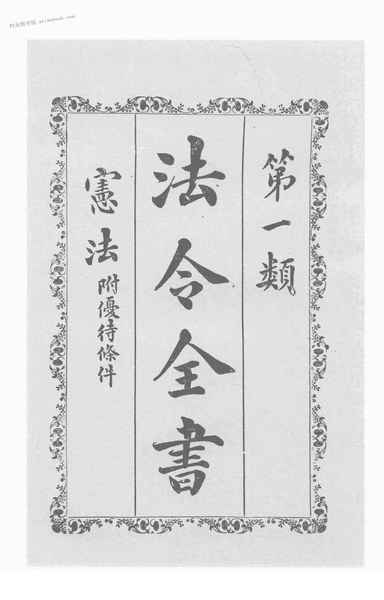 第一類
法令全書
憲法附優待條件